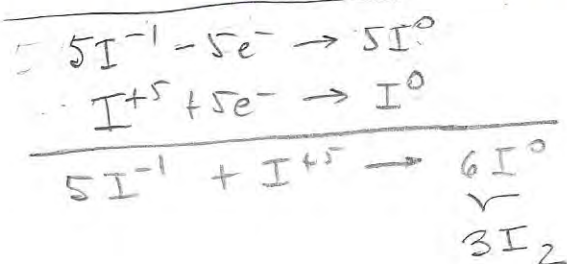 5I⁻¹ - 5e⁻ → 5I⁰
I⁺⁵ + 5e⁻ → I⁰
5I⁻¹ + I⁺⁵ → 6I⁰
3I₂